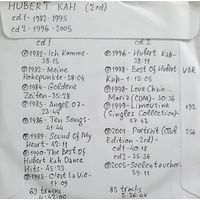 HUBERT KAH (2cd)
cd 1 - 1982 - 1995
cd 2 - 1996 - 2005
cd 1
1982 - Ich Komme - 38:15
1982 - Meine Hohepunkte - 38:04
1984 - Goldene Zeiten - 35:28
1985 - Angel 07 - 22:42
1986 - Ten Songs - 41:44
1989 - Sound Of My Heart - 42:11
1990 - The Best Of Hubert Kah Dance Hits - 45:23
1995 - C'est La Vie - 17:09
69 tracks
cd 2
1996 - Hubert Kah - 38:11
1998 - Best Of Hubert Kah - 1:15:05
1998 - Love Chain...
More (CDM) - 30:36
1999 - Limousine (Singles Collection) - 57:42
2001 - Portrait (Gold Edition - 2cd) -
cd1 - 40:18
cd2 - 35:36
2005 - Seelentaucher - 59:11
85 tracks
5:36:44
VBR
192
256